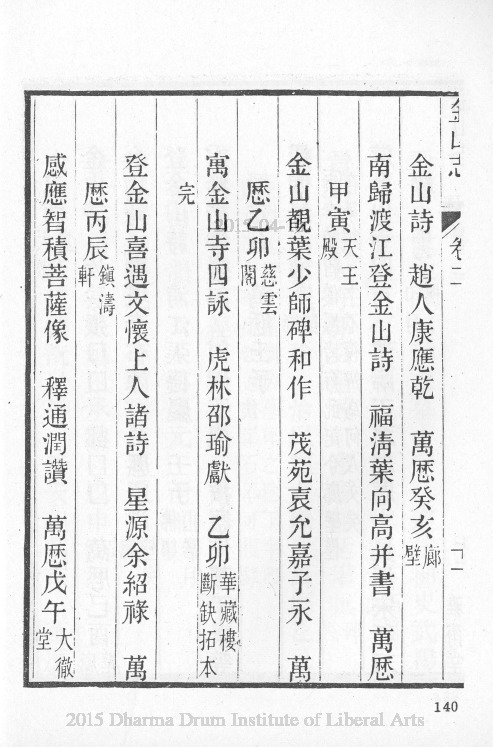 金山志　卷二　十一
金山詩　趙人康應乾　萬歷癸亥 廊壁
南歸渡江登金山詩　福淸葉向高并書　萬歷
甲寅 天王殿
金山觀葉少師碑和作　茂苑袁允嘉子永　萬
歷乙卯 慈雲閣
寓金山寺四詠　虎林邵瑜獻　乙卯 華藏樓斷缺拓本
完
登金山喜遇文懷上人諸詩　星源余紹祿　萬
歷丙辰 鎭濤軒
感應智積菩薩像　釋通潤讚　萬歷戊午 大徹堂
140
2015 Dharma Drum Institute of Liberal Arts